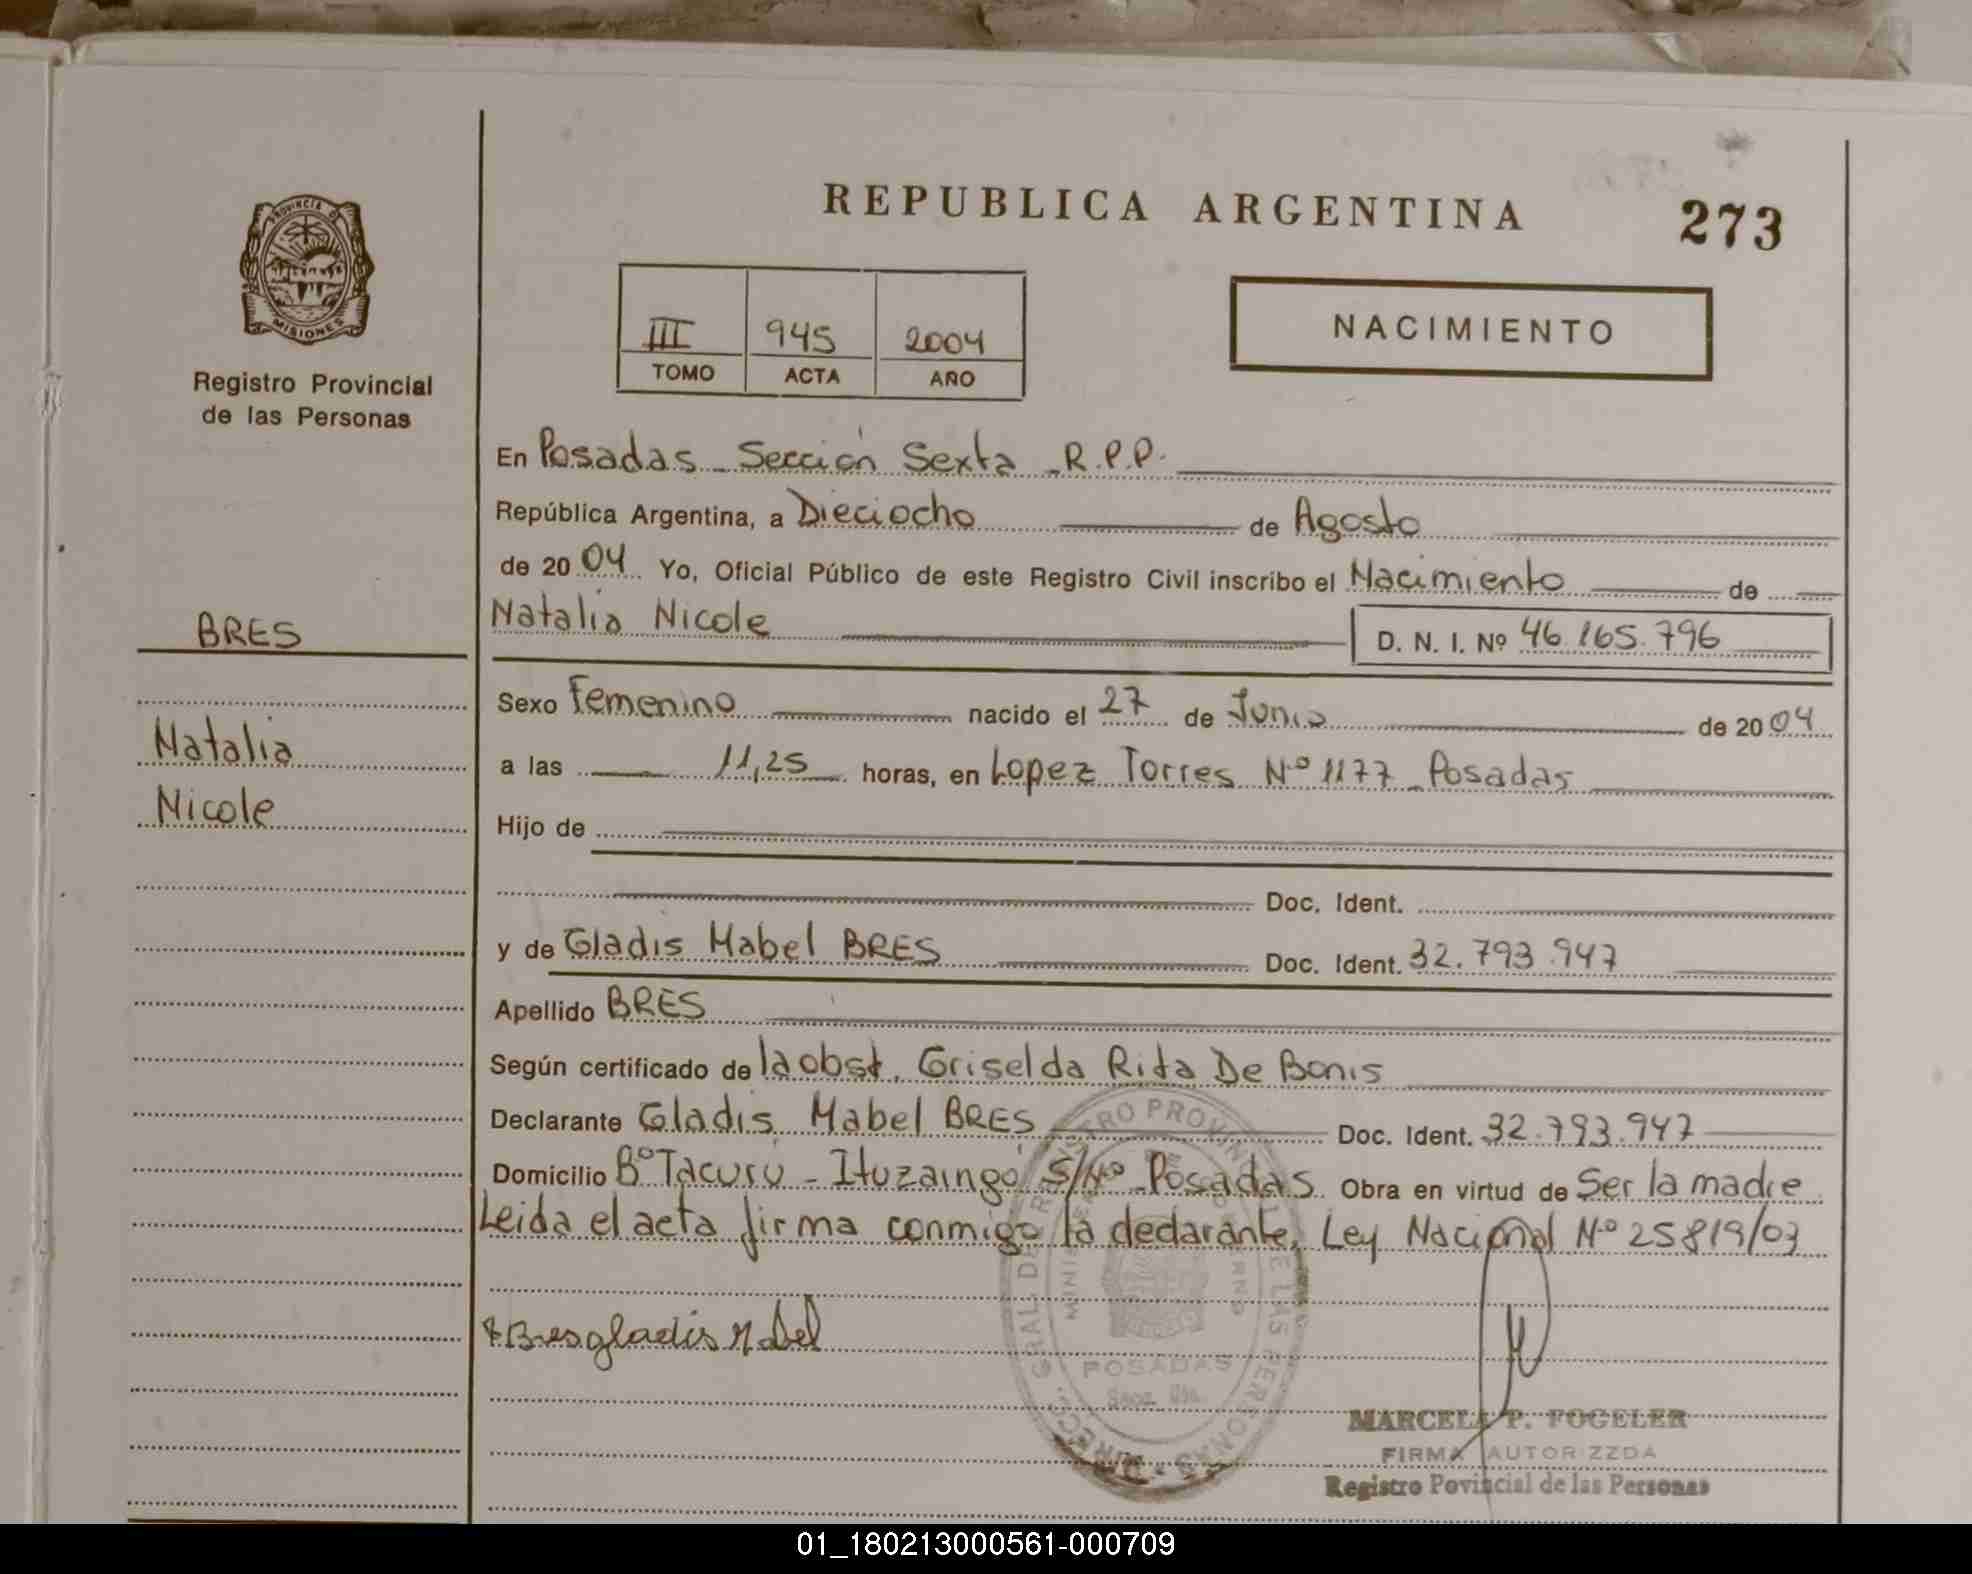 PROVINCIA DE
MISIONES
Registro Provincial
de las Personas
BRES
Natalia
Nicole
REPUBLICA ARGENTINA
273
III 945 2004
TOMO ACTA AÑO
NACIMIENTO
En Posadas - Sección Sexta - R.P.P.
República Argentina, a Dieciocho de Agosto
de 2004 Yo, Oficial Público de este Registro Civil inscribo el Nacimiento de
Natalia Nicole D. N. I. Nº 46.165.796
Sexo Femenino nacido el 27 de Junio de 2004
a las 11,25 horas, en Lopez Torres Nº 1177 - Posadas
Hijo de
Doc. Ident.
y de Gladis Mabel BRES Doc. Ident. 32.793.947
Apellido BRES
Según certificado de la obst. Griselda Rita De Bonis
Declarante Gladis Mabel BRES Doc. Ident. 32.793.947
Domicilio Bº Tacurú - Ituzaingó S/Nº Posadas Obra en virtud de Ser la madre
Leida el acta firma conmigo la declarante, Ley Nacional Nº 25819/03
Bres gladis Mabel
POSADAS
MARCELA P. FOGELER
FIRMA AUTORIZZDA
Registro Povincial de las Personas
01_180213000561-000709